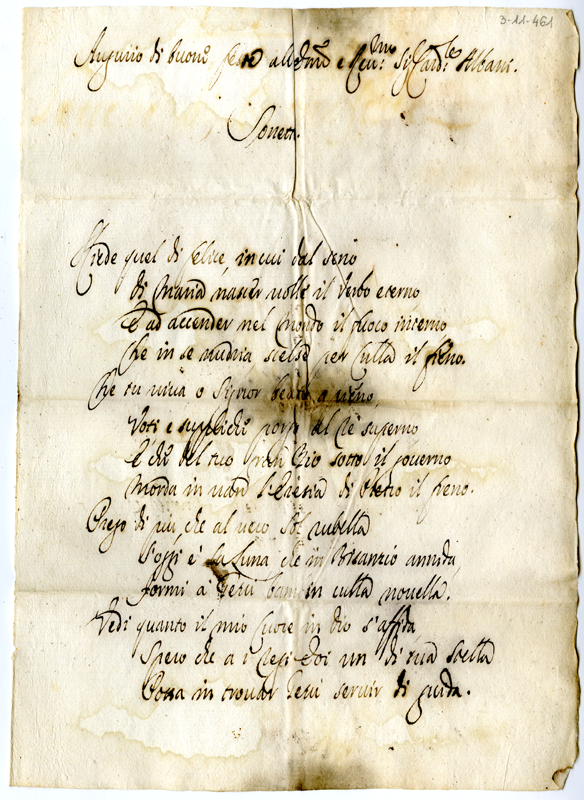 3-11-461
Augurio di buone feste all'Em.º e Rev.mo Sig. Card.le Albani.
Sonetto.
Riede quel di felice in cui dal seno
di Maria nascer volle il Verbo eterno
E ad accender nel Mondo il fuoco interno
Che in se nudria scelse per culla il fieno.
Che tu viva o Signor beato a pieno,
Voti e suppliche porgo al Re superno
E che del tuo gran Zio sotto il governo
Morda in van l'Eresia di Pietro il freno.
Prego di più che al vero Sol rubella
S'oggi è la Luna che in Bisanzio annida,
formi a Gesù bambin culla novella.
Vedi quanto il mio Cuore in Dio s'affida
Spero che a i Regi Eoi un di sua stella
Possa in trovar Gesù servir di guida.